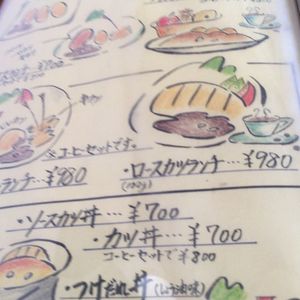 ¥700
※コーヒーセットです。
ランチ…¥980
・ロースカツランチ…¥980
・ソースカツ丼…¥700
・カツ丼…¥700
コーヒーセットで¥800
・つけだれ丼(しょう油味)